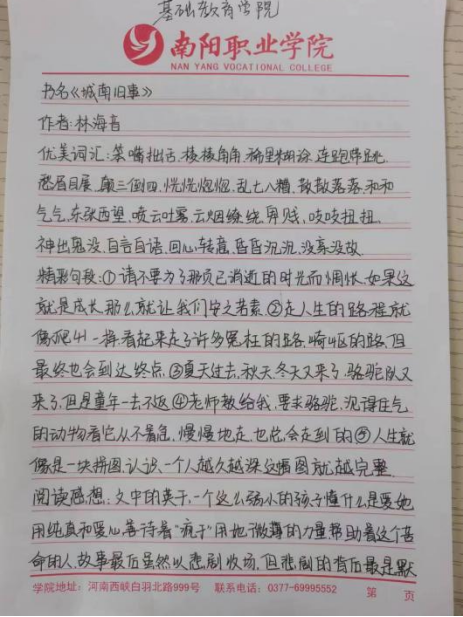 基础教育学院
南阳职业学院
NAN YANG VOCATIONAL COLLEGE
书名《城南旧事》
作者:林海音
优美词汇:笨嘴拙舌、棱棱角角、稀里糊涂、连跑带跳
愁眉目展、颠三倒四、恍恍惚惚、乱七八糟、散散落落、和和
气气、东张西望、喷云吐雾、云烟缭绕、卑贱、吱吱扭扭、
神出鬼没、自言自语、回心转意、昏昏沉沉、没亲没故
精彩句段:①请不要为了那页已消逝的时光而惆怅,如果这
就是成长,那么就让我们安之若素②走人生的路程就
像爬山一样,看起来走了许多冤枉的路,崎岖的路,但
最终也会到达终点③夏天过去,秋天,冬天又来了,骆驼队又
来了,但是童年一去不返④老师教给我,要学骆驼,沉得住气
的动物看它从不着急,慢慢地走,也总会走到的⑤人生就
像是一块拼图,认识一个人越久越深这幅图就越完整
阅读感想:文中的英子,一个这么弱小的孩子懂什么是爱她
用纯真和爱心善待着"疯子"用她微薄的力量帮助着这个苦
命的人,故事最后虽然以悲剧收场,但悲剧的背后最是默
学院地址:河南西峡白羽北路999号 联系电话:0377-69995552 第 页